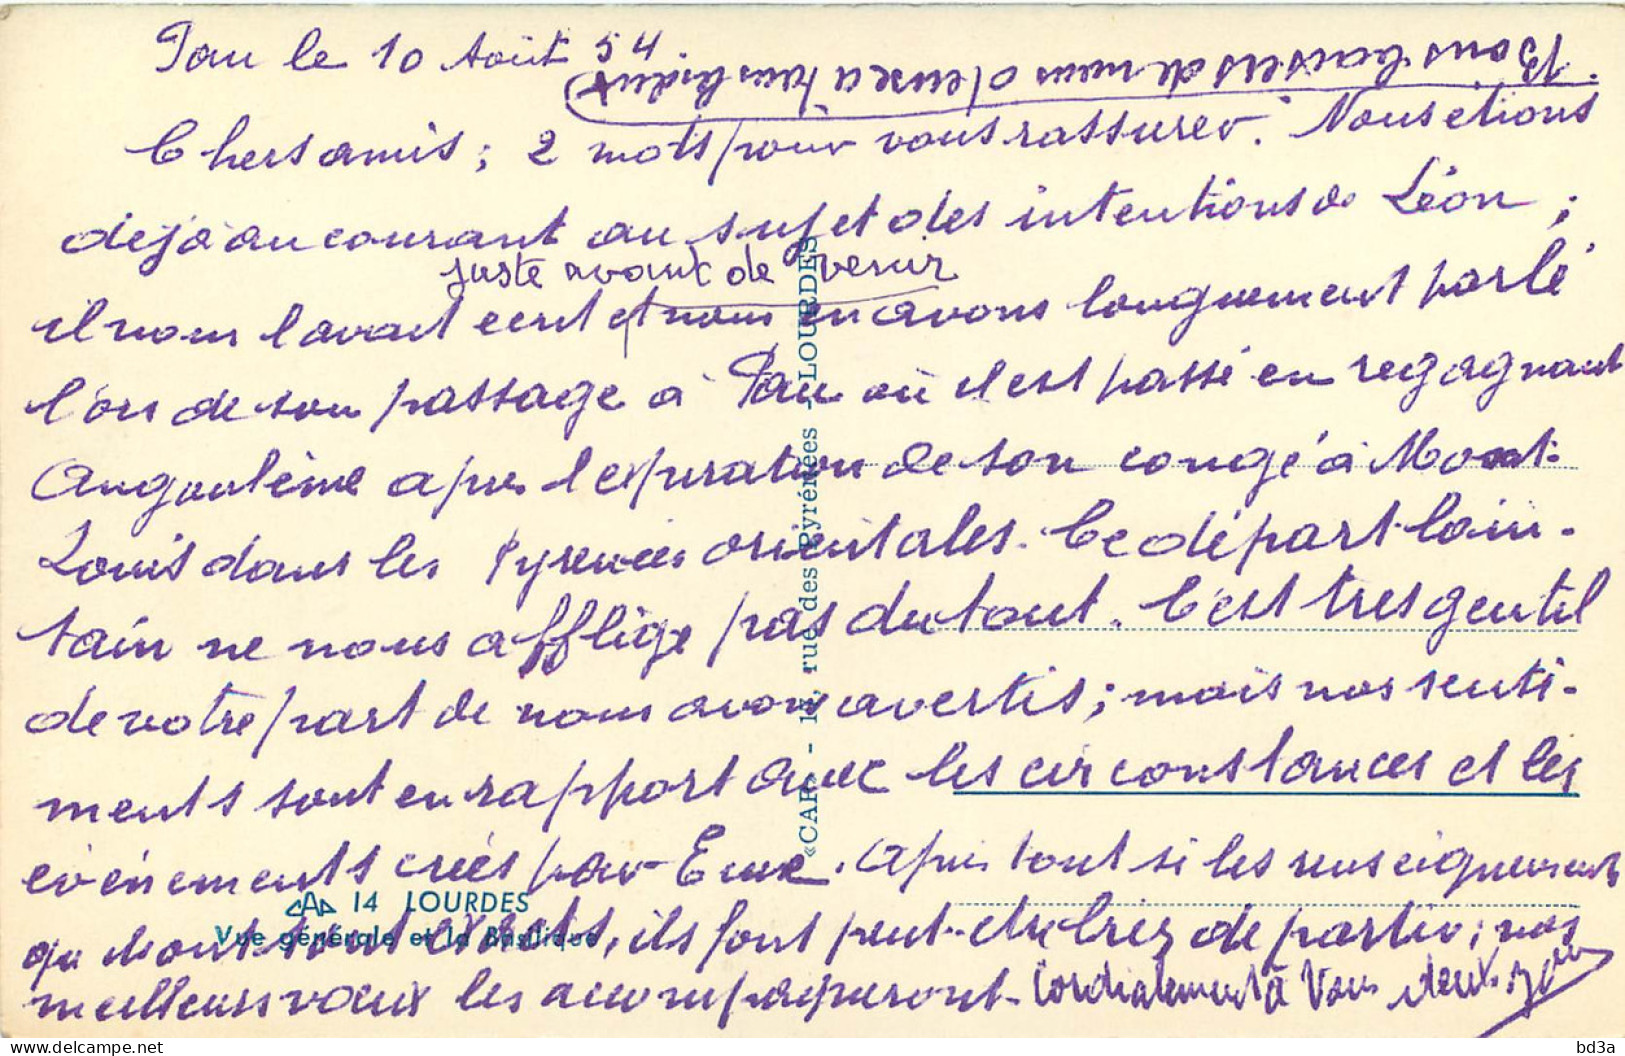 Pau le 10 Août 54.
Bons baisers de nous deux à tous deux
Chers amis; 2 mots pour vous rassurer. Nous etions
deja au courant au sujet des intentions de Léon;
juste avant de venir
il nous l'avait ecrit et nous en avons longuement parlé
lors de son passage à Pau où il est passé en regagnant
Angoulême apres l'expiration de son congé à Mont-
Louis dans les Pyrenées orientales. Ce départ loin-
tain ne nous afflige pas du tout. C'est tres gentil
de votre part de nous avoir avertis; mais nos senti-
ments sont en rapport avec les circonstances et les
évènements créés par Eux. Apres tout si les renseignements
qu'ils ont sont exacts, ils font peut-etre bien de partir; nos
meilleurs voeux les accompagneront. Cordialement à Vous deux.
CAP 14 LOURDES
Vue générale et la Basilique
«CAP» - 12, rue des Pyrénées - LOURDES
bd3a